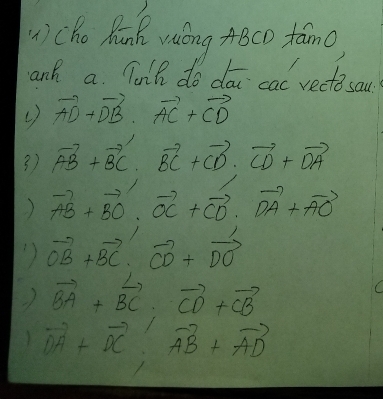 4) Cho hình vuông ABCD tâm O,
cạnh a. Tính độ dài các vectơ sau:
1) $\overrightarrow{AD}+\overrightarrow{DB}$. $\overrightarrow{AC}+\overrightarrow{CD}$
2) $\overrightarrow{AB}+\overrightarrow{BC}$; $\overrightarrow{BC}+\overrightarrow{CD}$. $\overrightarrow{CD}+\overrightarrow{DA}$
) $\overrightarrow{AB}+\overrightarrow{BO}$. $\overrightarrow{OC}+\overrightarrow{CD}$. $\overrightarrow{DA}+\overrightarrow{AO}$
) $\overrightarrow{OB}+\overrightarrow{BC}$; $\overrightarrow{CD}+\overrightarrow{DO}$
) $\overrightarrow{BA}+\overrightarrow{BC}$; $\overrightarrow{CD}+\overrightarrow{CB}$
) $\overrightarrow{DA}+\overrightarrow{DC}$; $\overrightarrow{AB}+\overrightarrow{AD}$